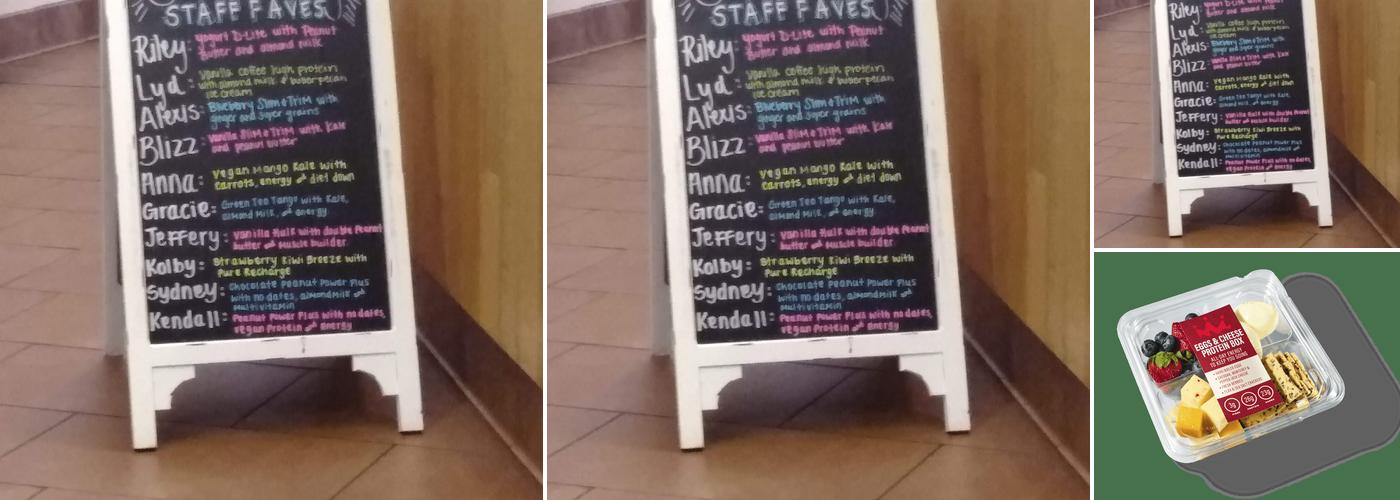 STAFF FAVES
Riley: Yogurt D-Lite with Peanut
Butter and almond milk
Lyd: Vanilla coffee high protein
with almond milk & butter pecan
ice cream
Alexis: Blueberry Slim & Trim with
ginger and super grains
Blizz: Vanilla Slim & Trim with Kale
and peanut butter
Anna: vegan Mango Kale with
Carrots, energy and diet down
Gracie: Green Tea Tango with Kale,
almond Milk, and energy
Jeffery: Vanilla Hulk with double Peanut
butter and Muscle builder
Kolby: Strawberry Kiwi Breeze with
Pure Recharge
Sydney: Chocolate Peanut Power Plus
with no dates, almond Milk and
Multivitamin
Kendall: Peanut Power Plus with no dates,
vegan Protein and energy
STAFF FAVES
Riley: Yogurt D-Lite with Peanut
Butter and almond milk
Lyd: Vanilla coffee high protein
with almond milk & butter pecan
ice cream
Alexis: Blueberry Slim & Trim with
ginger and super grains
Blizz: Vanilla Slim & Trim with Kale
and peanut butter
Anna: vegan Mango Kale with
Carrots, energy and diet down
Gracie: Green Tea Tango with Kale,
almond Milk, and energy
Jeffery: Vanilla Hulk with double Peanut
butter and Muscle builder
Kolby: Strawberry Kiwi Breeze with
Pure Recharge
Sydney: Chocolate Peanut Power Plus
with no dates, almond Milk and
Multivitamin
Kendall: Peanut Power Plus with no dates,
vegan Protein and energy
Riley: Yogurt D-Lite with Peanut
Butter and almond milk
Lyd: Vanilla coffee high protein
with almond milk & butter pecan
ice cream
Alexis: Blueberry Slim & Trim with
ginger and super grains
Blizz: Vanilla Slim & Trim with Kale
and peanut butter
Anna: vegan Mango Kale with
Carrots, energy and diet down
Gracie: Green Tea Tango with Kale,
almond Milk, and energy
Jeffery: Vanilla Hulk with double Peanut
butter and Muscle builder
Kolby: Strawberry Kiwi Breeze with
Pure Recharge
Sydney: Chocolate Peanut Power Plus
with no dates, almond Milk and
Multivitamin
Kendall: Peanut Power Plus with no dates,
vegan Protein and energy
EGGS & CHEESE
PROTEIN BOX
ALL-DAY ENERGY
TO KEEP YOU GOING